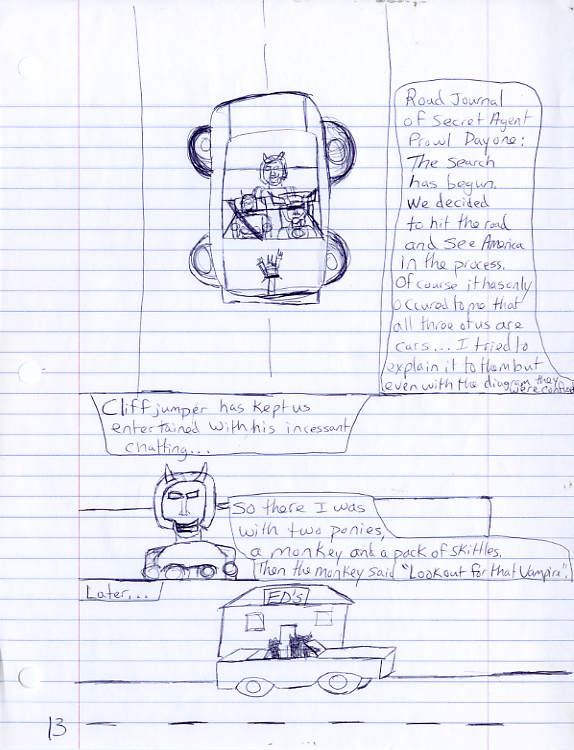 Road Journal
of Secret Agent
Prowl Day one:
The search
has begun.
We decided
to hit the road
and see America
in the process.
Of course it has only
occured to me that
all three of us are
cars... I tried to
explain it to them but
even with the diagram they
were confused
Cliffjumper has kept us
entertained with his incessant
chatting...
So there I was
with two ponies,
a monkey and a pack of skittles.
Then the monkey said "Look out for that Vampire".
Later...
ED's
13